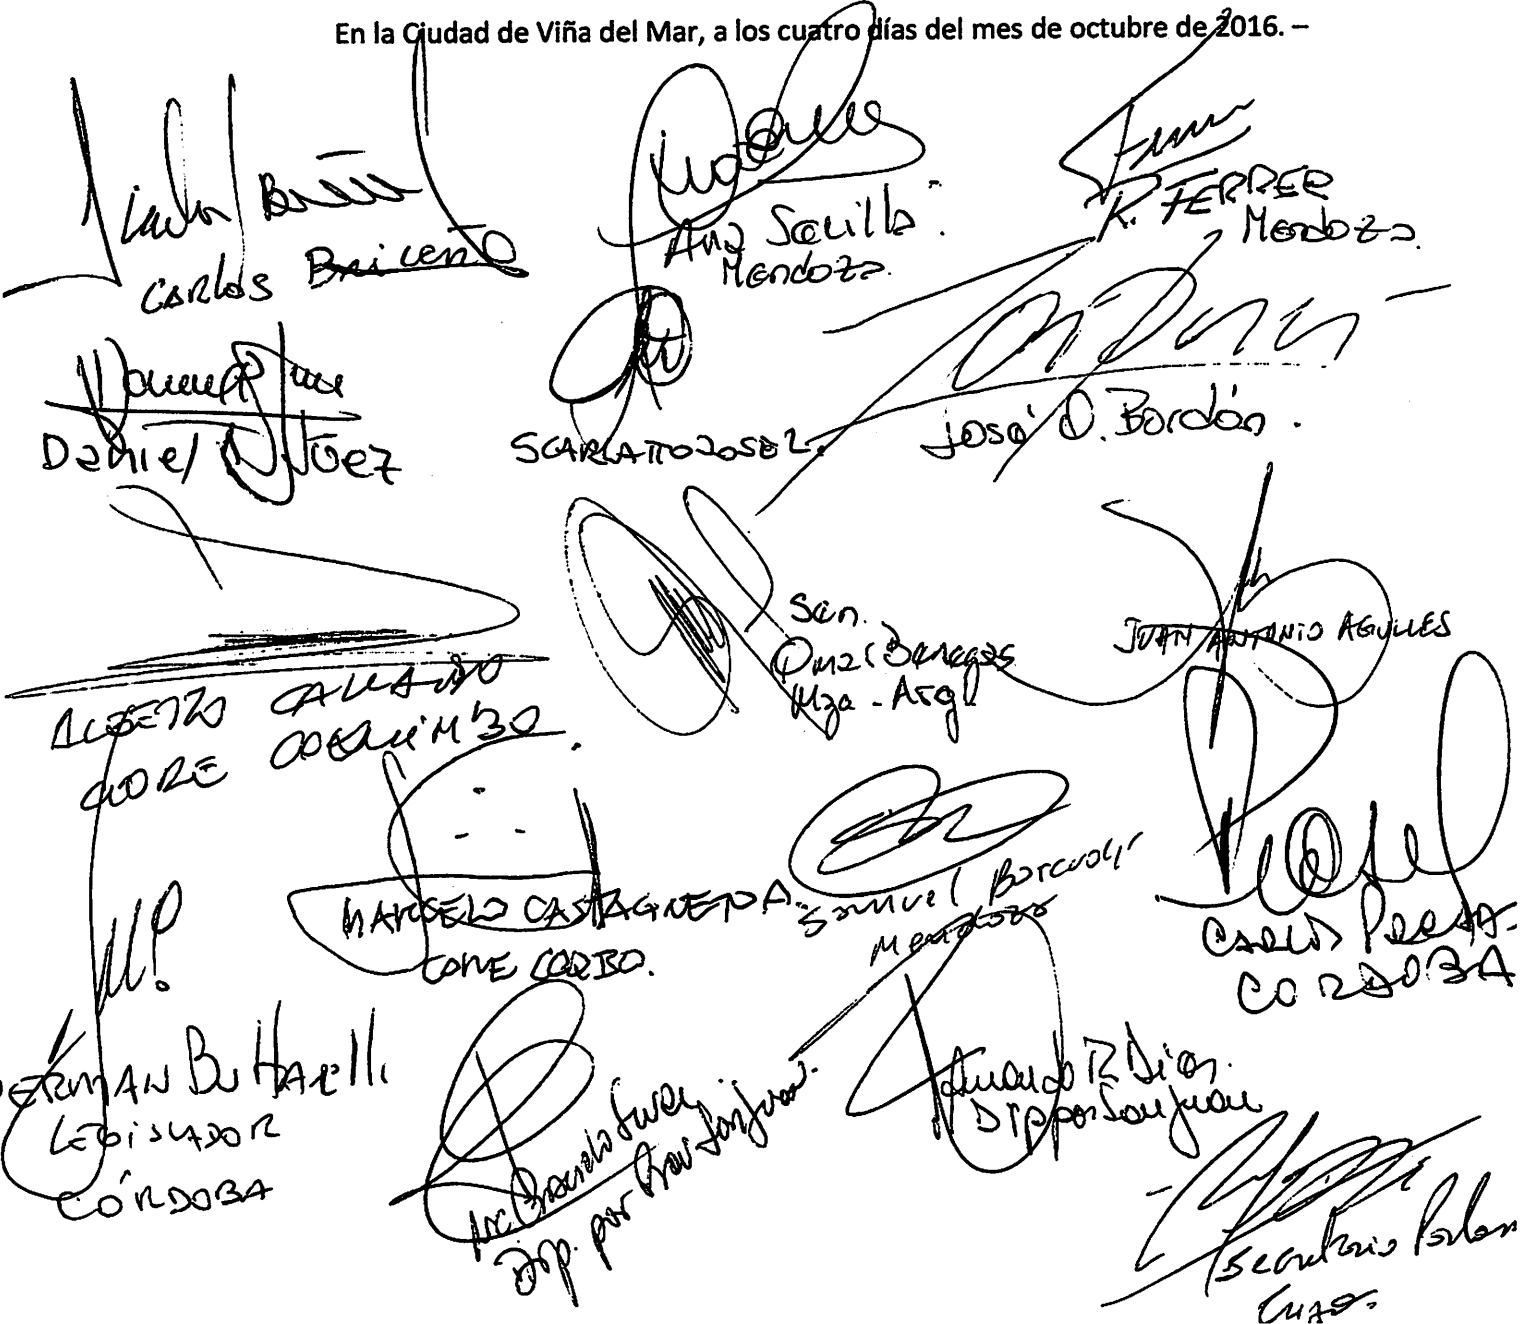 En la Ciudad de Viña del Mar, a los cuatro días del mes de octubre de 2016. –
CARLOS Briceño
Ana Sevilla
Mendoza.
R. FERRER
Mendoza.
Daniel Núñez
SCARLATTO JOSE L.
José O. Bordón.
ALBERTO GALLARDO
CORE COQUIMBO.
Sen.
Omar Banegas
Mza - Arg
JUAN ANTONIO AGULLES
MARCELO CASTAGNETO A.
CORE COQBO.
Samuel
Mendoza
CARLOS PRESAS
CORDOBA
GERMÁN Buttarelli
LEGISLADOR
CÓRDOBA
Dip. por San Juan
Dip por San Juan
Secretario